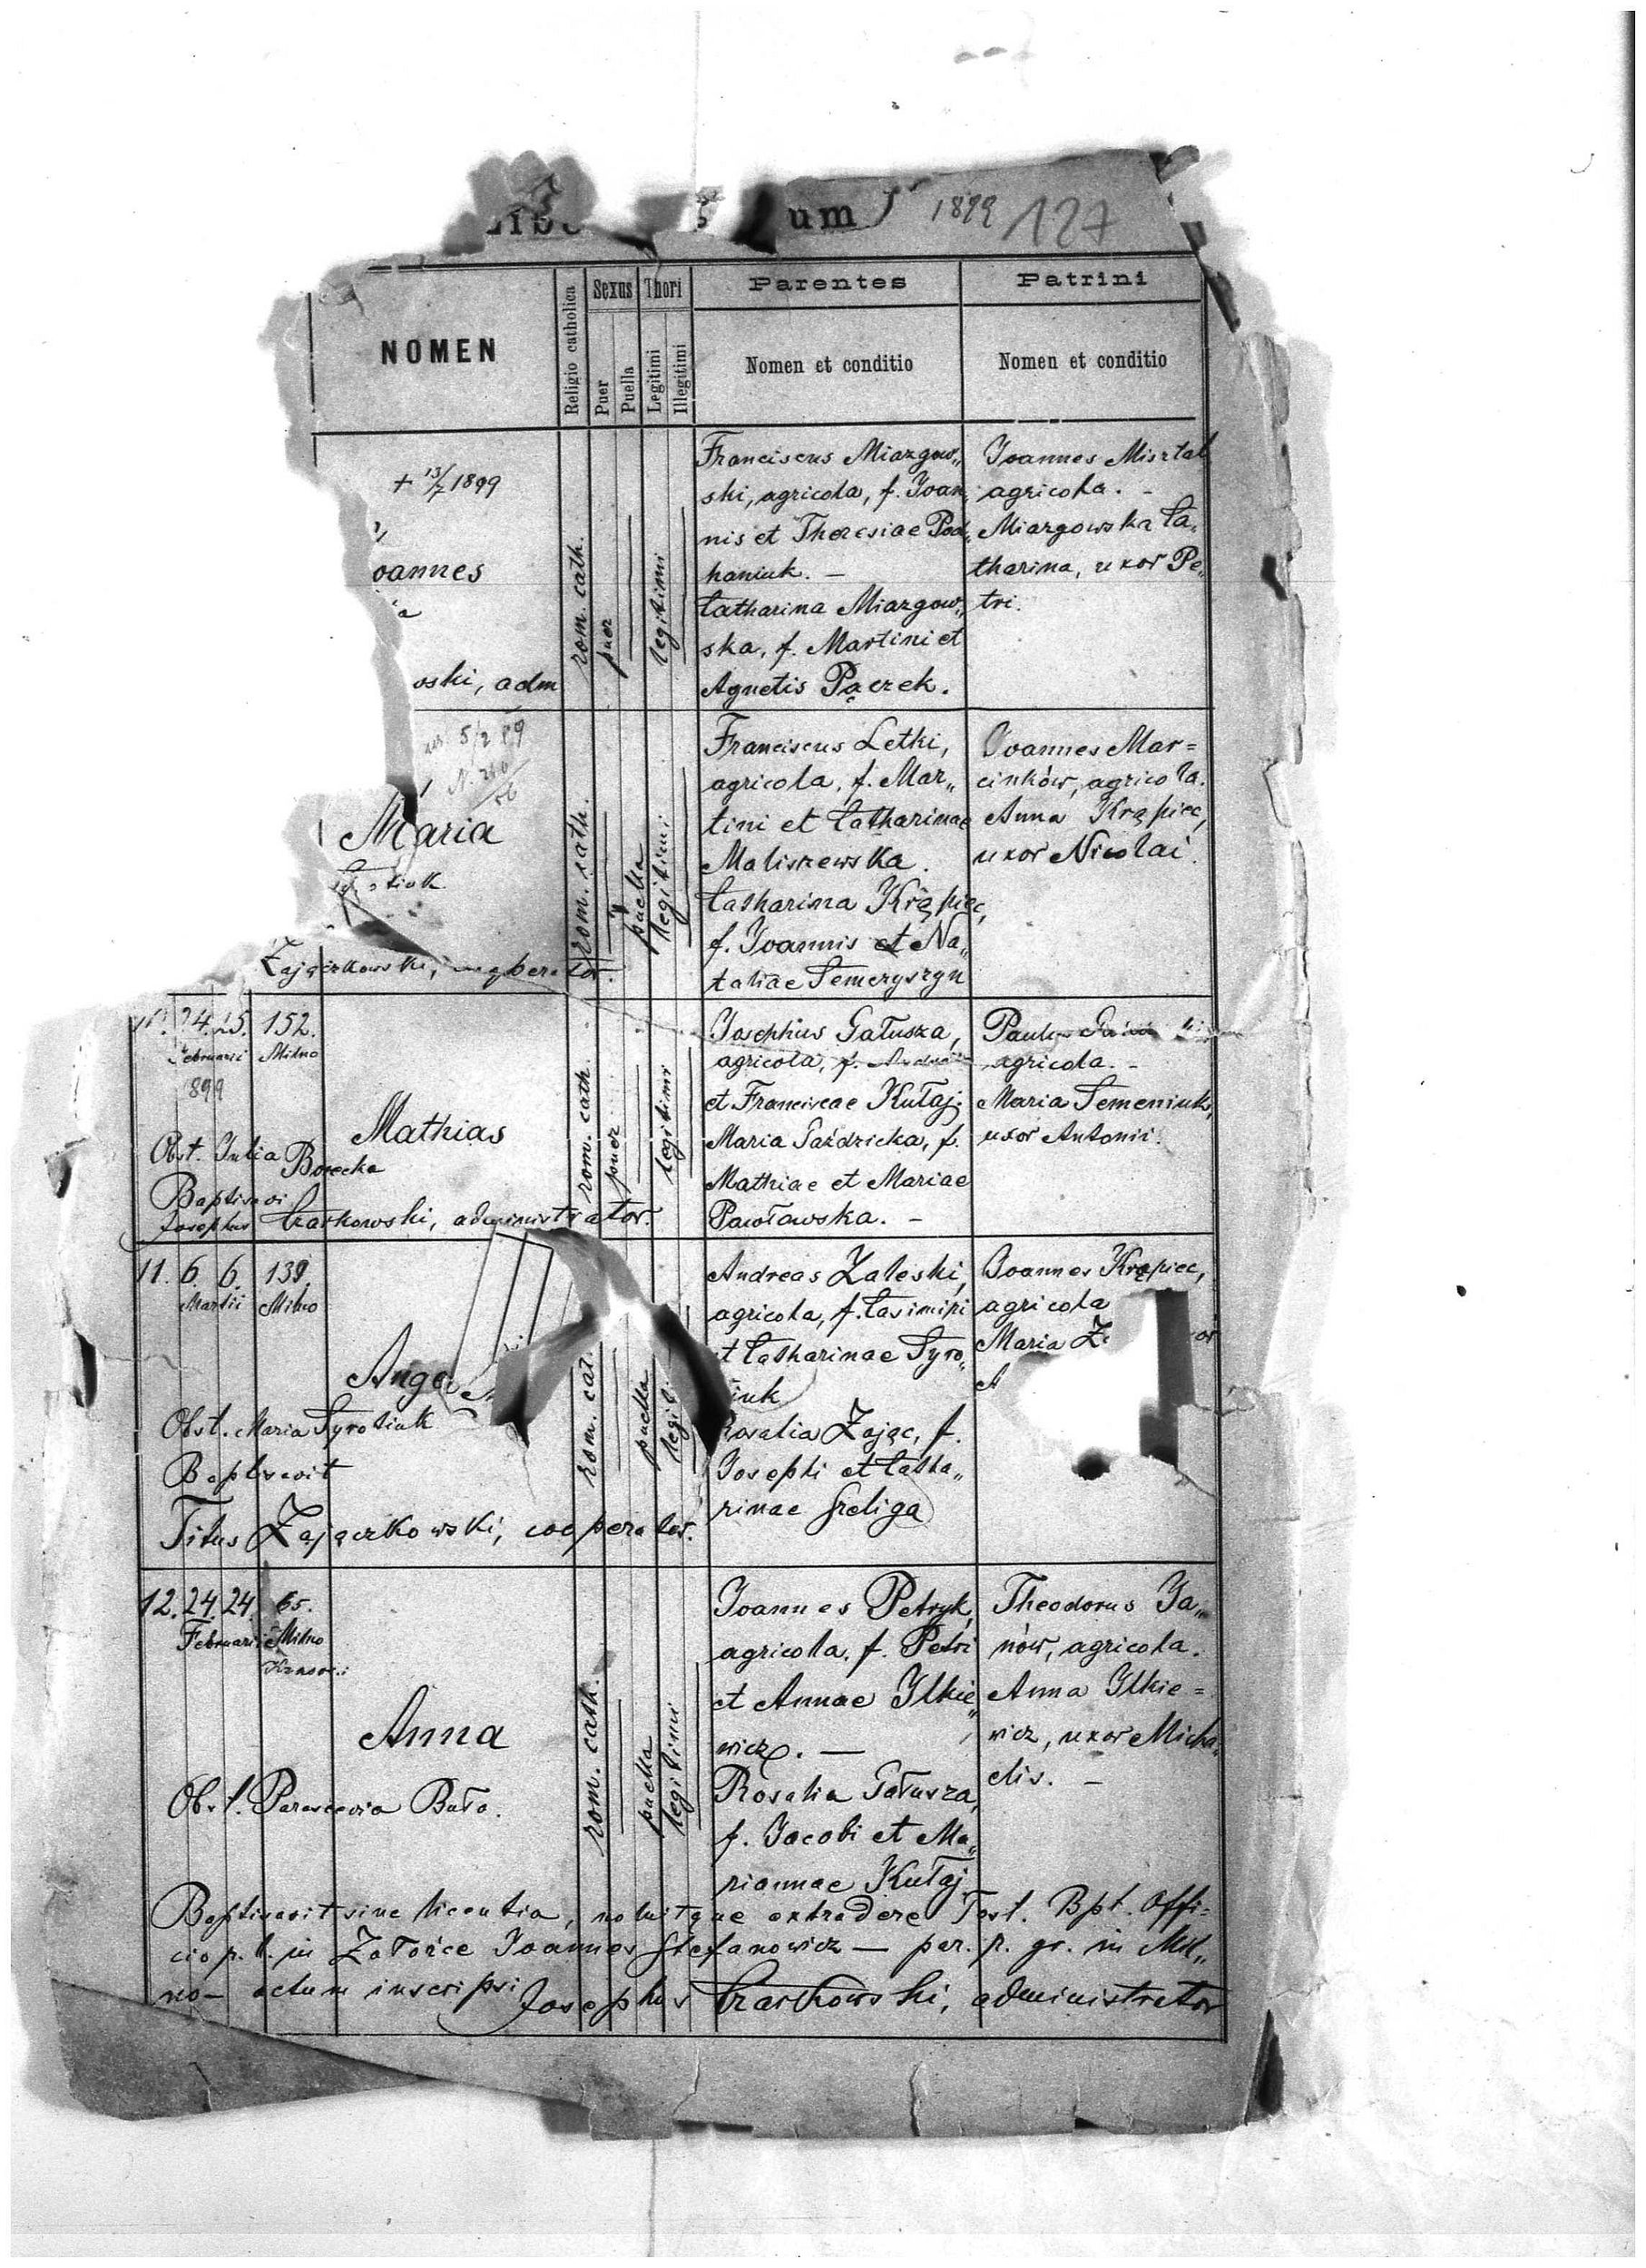 um 1899 127
NOMEN
Religio catholica
Sexus
Puer
Puella
Thori
Legitimi
Illegitimi
Parentes
Nomen et conditio
Patrini
Nomen et conditio
+ 13/7 1899
oannes
oski, adm
rom. cath.
puer
legitimi
Franciscus Miazgow„
ski, agricola, f. Joan„
nis et Theresiae Pod„
haniuk. —
Catharina Miazgow„
ska, f. Martini et
Agnetis Pączek.
Joannes Misztal
agricola. -
Miazgowska Ca„
tharina, uxor Pe„
tri.
Maria
Zajączkowski, cooperator.
rom. cath.
puella
legitimi
Franciscus Letki,
agricola, f. Mar„
tini et Catharinae
Maliszewska.
Catharina Krąpiec,
f. Joannis et Na„
taliae Semczyszyn
Joannes Mar=
cinków, agricola.
Anna Krąpiec,
uxor Nicolai.
24. 25. 152.
Februarii Milno
899
Mathias
Obst. Julia Borecka
Baptisavi
Josephus Czarkowski, administrator.
rom. cath.
puer
legitimi
Josephus Gałusza,
agricola, f.
et Franciscae Kułaj.
Maria Gaździcka, f.
Mathiae et Mariae
Pawławska. —
agricola. -
Maria Semeniuk,
uxor Antonii.
11. 6. 6. 139.
Martii Milno
Ange
Obst. Maria Syrotiuk
Baptisavit
Titus Zajączkowski, cooperator.
rom. cat
puella
legiti
Andreas Zaleski,
agricola, f. Casimiri
et Catharinae Syro„
iuk
Rosalia Zając, f.
Josephi et Catha„
rinae Greliga
Joannes Krąpiec,
agricola
Maria Z
12. 24. 24. 65.
Februarii Milno
Anna
Obst. Parascevia Buła.
rom. cath.
puella
legitimi
Joannes Petryk,
agricola, f. Petri
et Annae Ilkie„
wicz. —
Rosalia Gałusza,
f. Jacobi et Ma„
riannae Kułaj
Theodorus Ja„
nów, agricola.
Anna Ilkie=
wicz, uxor Micha„
elis. —
Baptisavit sine licentia, noluitque extradere Test. Bpt. Offi=
cio p. l. in Załoźce Joannes Stefanowicz — par. r. gr. in Mil„
no — actum inscripsi Josephus Czarkowski, administrator